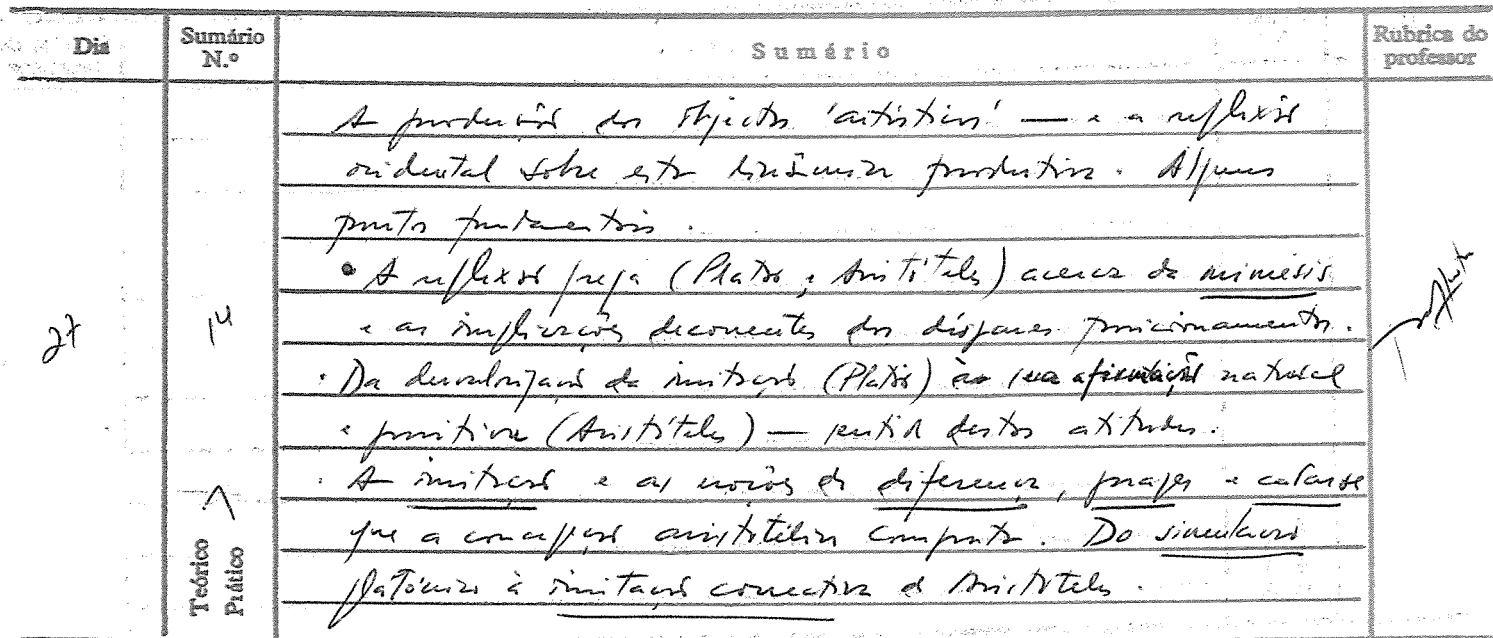 Dia
Sumário N.º
Sumário
Rubrica do professor
A produção dos objectos 'artísticos' — e a reflexão
ocidental sobre esta dinâmica produtiva. Alguns
pontos fundamentais.
• A reflexão grega (Platão e Aristóteles) acerca da mimesis
e as implicações decorrentes dos díspares posicionamentos.
27
14
. Da desvalorização da imitação (Platão) à sua afirmação natural
e positiva (Aristóteles) — sentido destas atitudes.
. A imitação e as noções de diferença, prazer e catarse
que a concepção aristotélica comporta. Do simulacro
platónico à imitação correctiva de Aristóteles.
Teórico
Prático